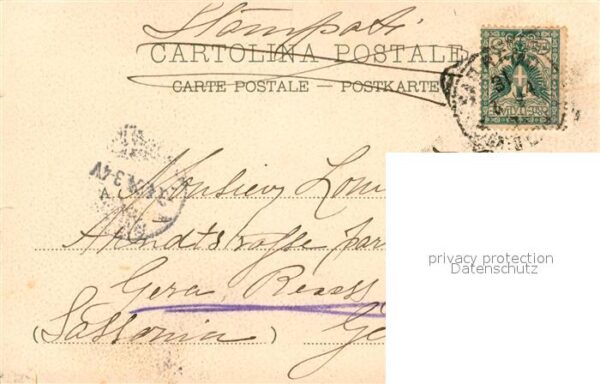 Stampati
CARTOLINA POSTALE
CARTE POSTALE — POSTKARTE
A Monsieur Loui
Arndtstrasse par
privacy protection
Datenschutz
Gera, Reuss
(Sassonia) Ge